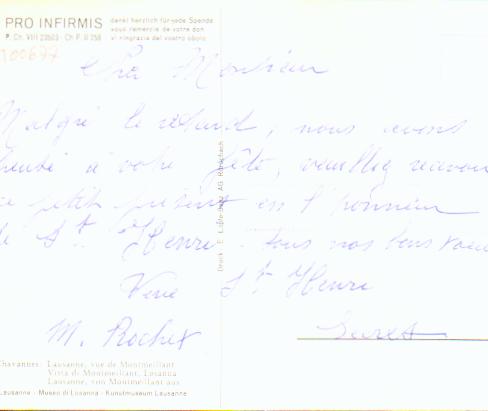 PRO INFIRMIS
dankt herzlich für jede Spende
vous remercie de votre don
vi ringrazia del vostro obolo
P. Ch. VIII 23503 - Ch P. II 258
100677
Cher Monsieur
Malgré le retard, nous avons
pensé à votre fête, veuillez recevoir
ce petit présent en l'honneur
de St Henri. tous nos bons voeux
Vive St Henri
M. Rochex
Chavannes: Lausanne, vue de Montmeillant
Vista di Montmeillant, Losanna
Lausanne, von Montmeillant aus
Lausanne - Museo di Losanna - Kunstmuseum Lausanne